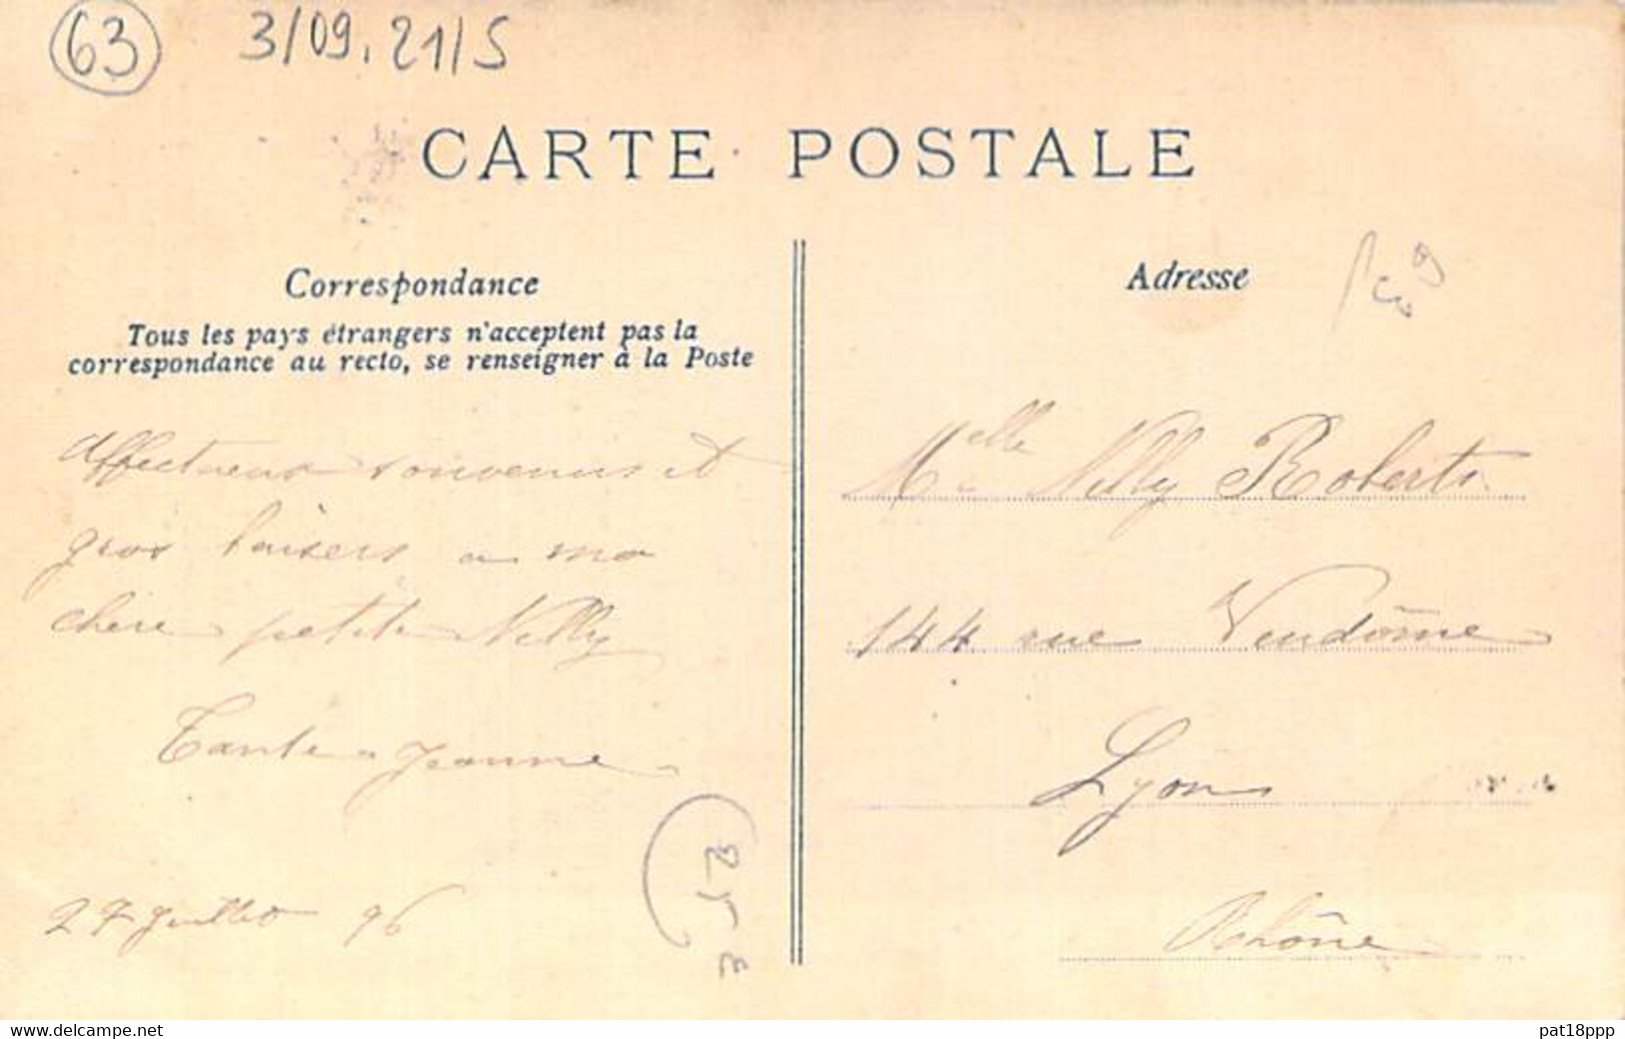 63
3/09.21/5
CARTE POSTALE
Correspondance
Tous les pays étrangers n'acceptent pas la
correspondance au recto, se renseigner à la Poste
Affectueux souvenirs et
gros baisers a ma
chère petite Nelly
Tante Jeanne
27 Juillet 06
25 E
Adresse
Melle Nelly Roberts
144 rue Vendôme
Lyon
Rhône
www.delcampe.net
pat18ppp